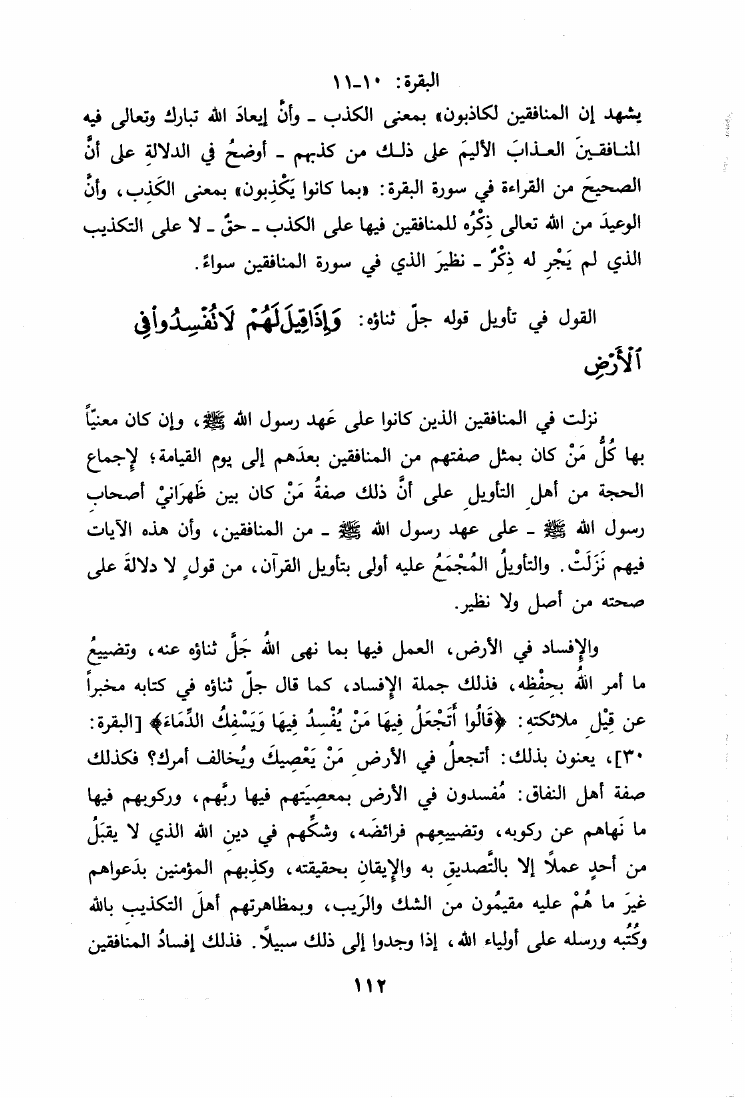 البقرة: ١٠-١١
يشهد إن المنافقين لكاذبون» بمعنى الكذب ـ وأنَّ إيعادَ الله تبارك وتعالى فيه
المنافقينَ العذابَ الأليمَ على ذلك من كذبهم ـ أوضحُ في الدلالةِ على أنَّ
الصحيحَ من القراءة في سورة البقرة: «بما كانوا يَكْذِبون» بمعنى الكَذِب، وأنَّ
الوعيدَ من الله تعالى ذِكْرُه للمنافقين فيها على الكذب ـ حقٌ ـ لا على التكذيب
الذي لم يَجْرِ له ذِكْرٌ ـ نظيرَ الذي في سورة المنافقين سواءً.
القول في تأويل قوله جلّ ثناؤه: وَإِذَا قِيلَ لَهُمْ لَا تُفْسِدُوا فِي
ٱلْأَرْضِ
نزلت في المنافقين الذين كانوا على عَهد رسول الله ﷺ، وإن كان معنيّاً
بها كُلُّ مَنْ كان بمثل صفتهم من المنافقين بعدَهم إلى يوم القيامة؛ لإجماع
الحجة من أهلِ التأويلِ على أنَّ ذلك صفةُ مَنْ كان بين ظَهرَانيْ أصحابِ
رسول الله ﷺ ـ على عهد رسول الله ﷺ ـ من المنافقين، وأن هذه الآيات
فيهم نَزَلَتْ. والتأويلُ المُجْمَعُ عليه أولى بتأويل القرآن، من قولٍ لا دلالةَ على
صحته من أصل ولا نظير.
والإفساد في الأرض، العمل فيها بما نهى اللهُ جَلَّ ثناؤه عنه، وتضييعُ
ما أمر اللهُ بحِفْظِه، فذلك جملة الإفساد، كما قال جلّ ثناؤه في كتابه مخبراً
عن قِيْلِ ملائكته: ﴿قَالُوا أَتَجْعَلُ فِيهَا مَنْ يُفْسِدُ فِيهَا وَيَسْفِكُ الدِّمَاءَ﴾ [البقرة:
٣٠]، يعنون بذلك: أتجعلُ في الأرضِ مَنْ يَعْصِيكَ ويُخالف أمرك؟ فكذلك
صفة أهل النفاق: مُفسدون في الأرض بمعصِيَتهم فيها ربَّهم، وركوبهم فيها
ما نَهاهم عن ركوبه، وتضييعِهم فرائضَه، وشكِّهم في دينِ الله الذي لا يقبَلُ
من أحدٍ عملًا إلا بالتَّصديقِ به والإيقانِ بحقيقته، وكذِبهم المؤمنين بدَعواهم
غيرَ ما هُمْ عليه مقيمُون من الشك والرَيب، وبمظاهرتهم أهلَ التكذيبِ بالله
وكُتُبه ورسله على أولياء الله، إذا وجدوا إلى ذلك سبيلًا. فذلك إفسادُ المنافقين
١١٢